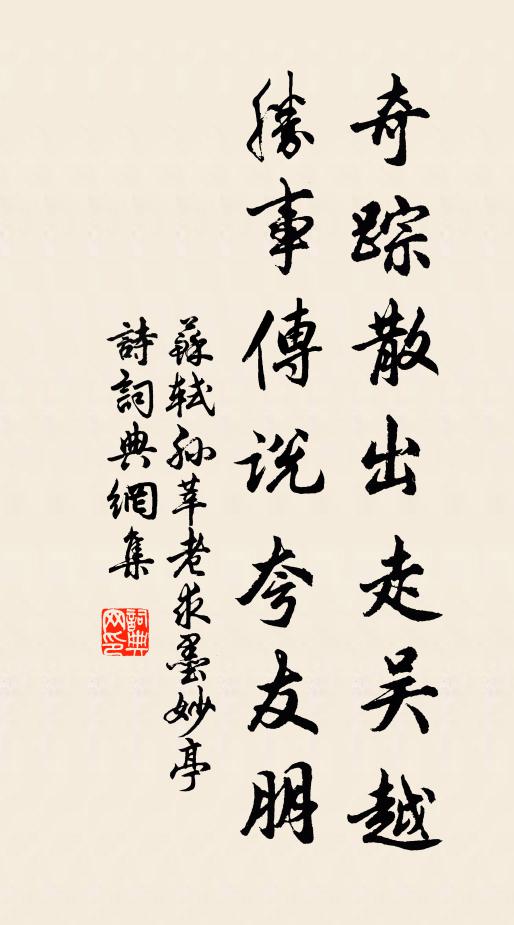 奇踪散出走吴越
勝事傳说夸友朋
蘇轼孙莘老求墨妙亭
詩詞典網集
詞典网印